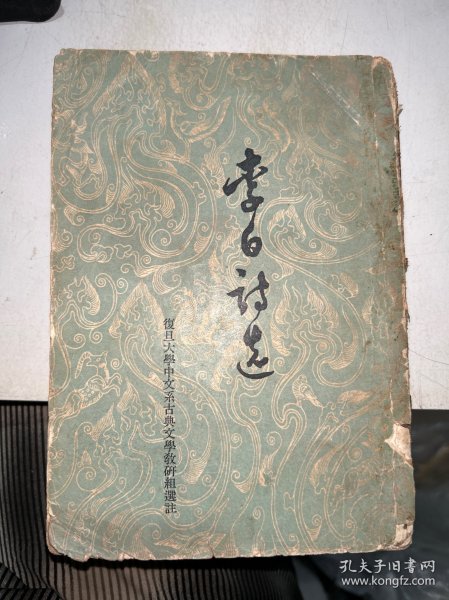 李白詩选
復旦大學中文系古典文學教研組選註
孔夫子旧书网
www.kongfz.com